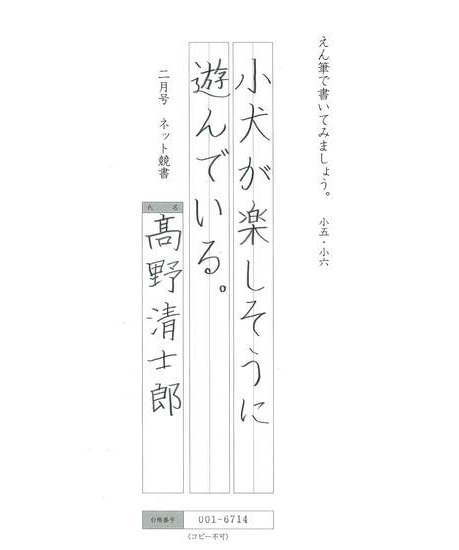 えん筆で書いてみましょう。 小五・小六
小犬が楽しそうに
遊んでいる。
二月号 ネット競書
氏名
髙野清士郎
合格番号 001-6714
〈コピー不可〉